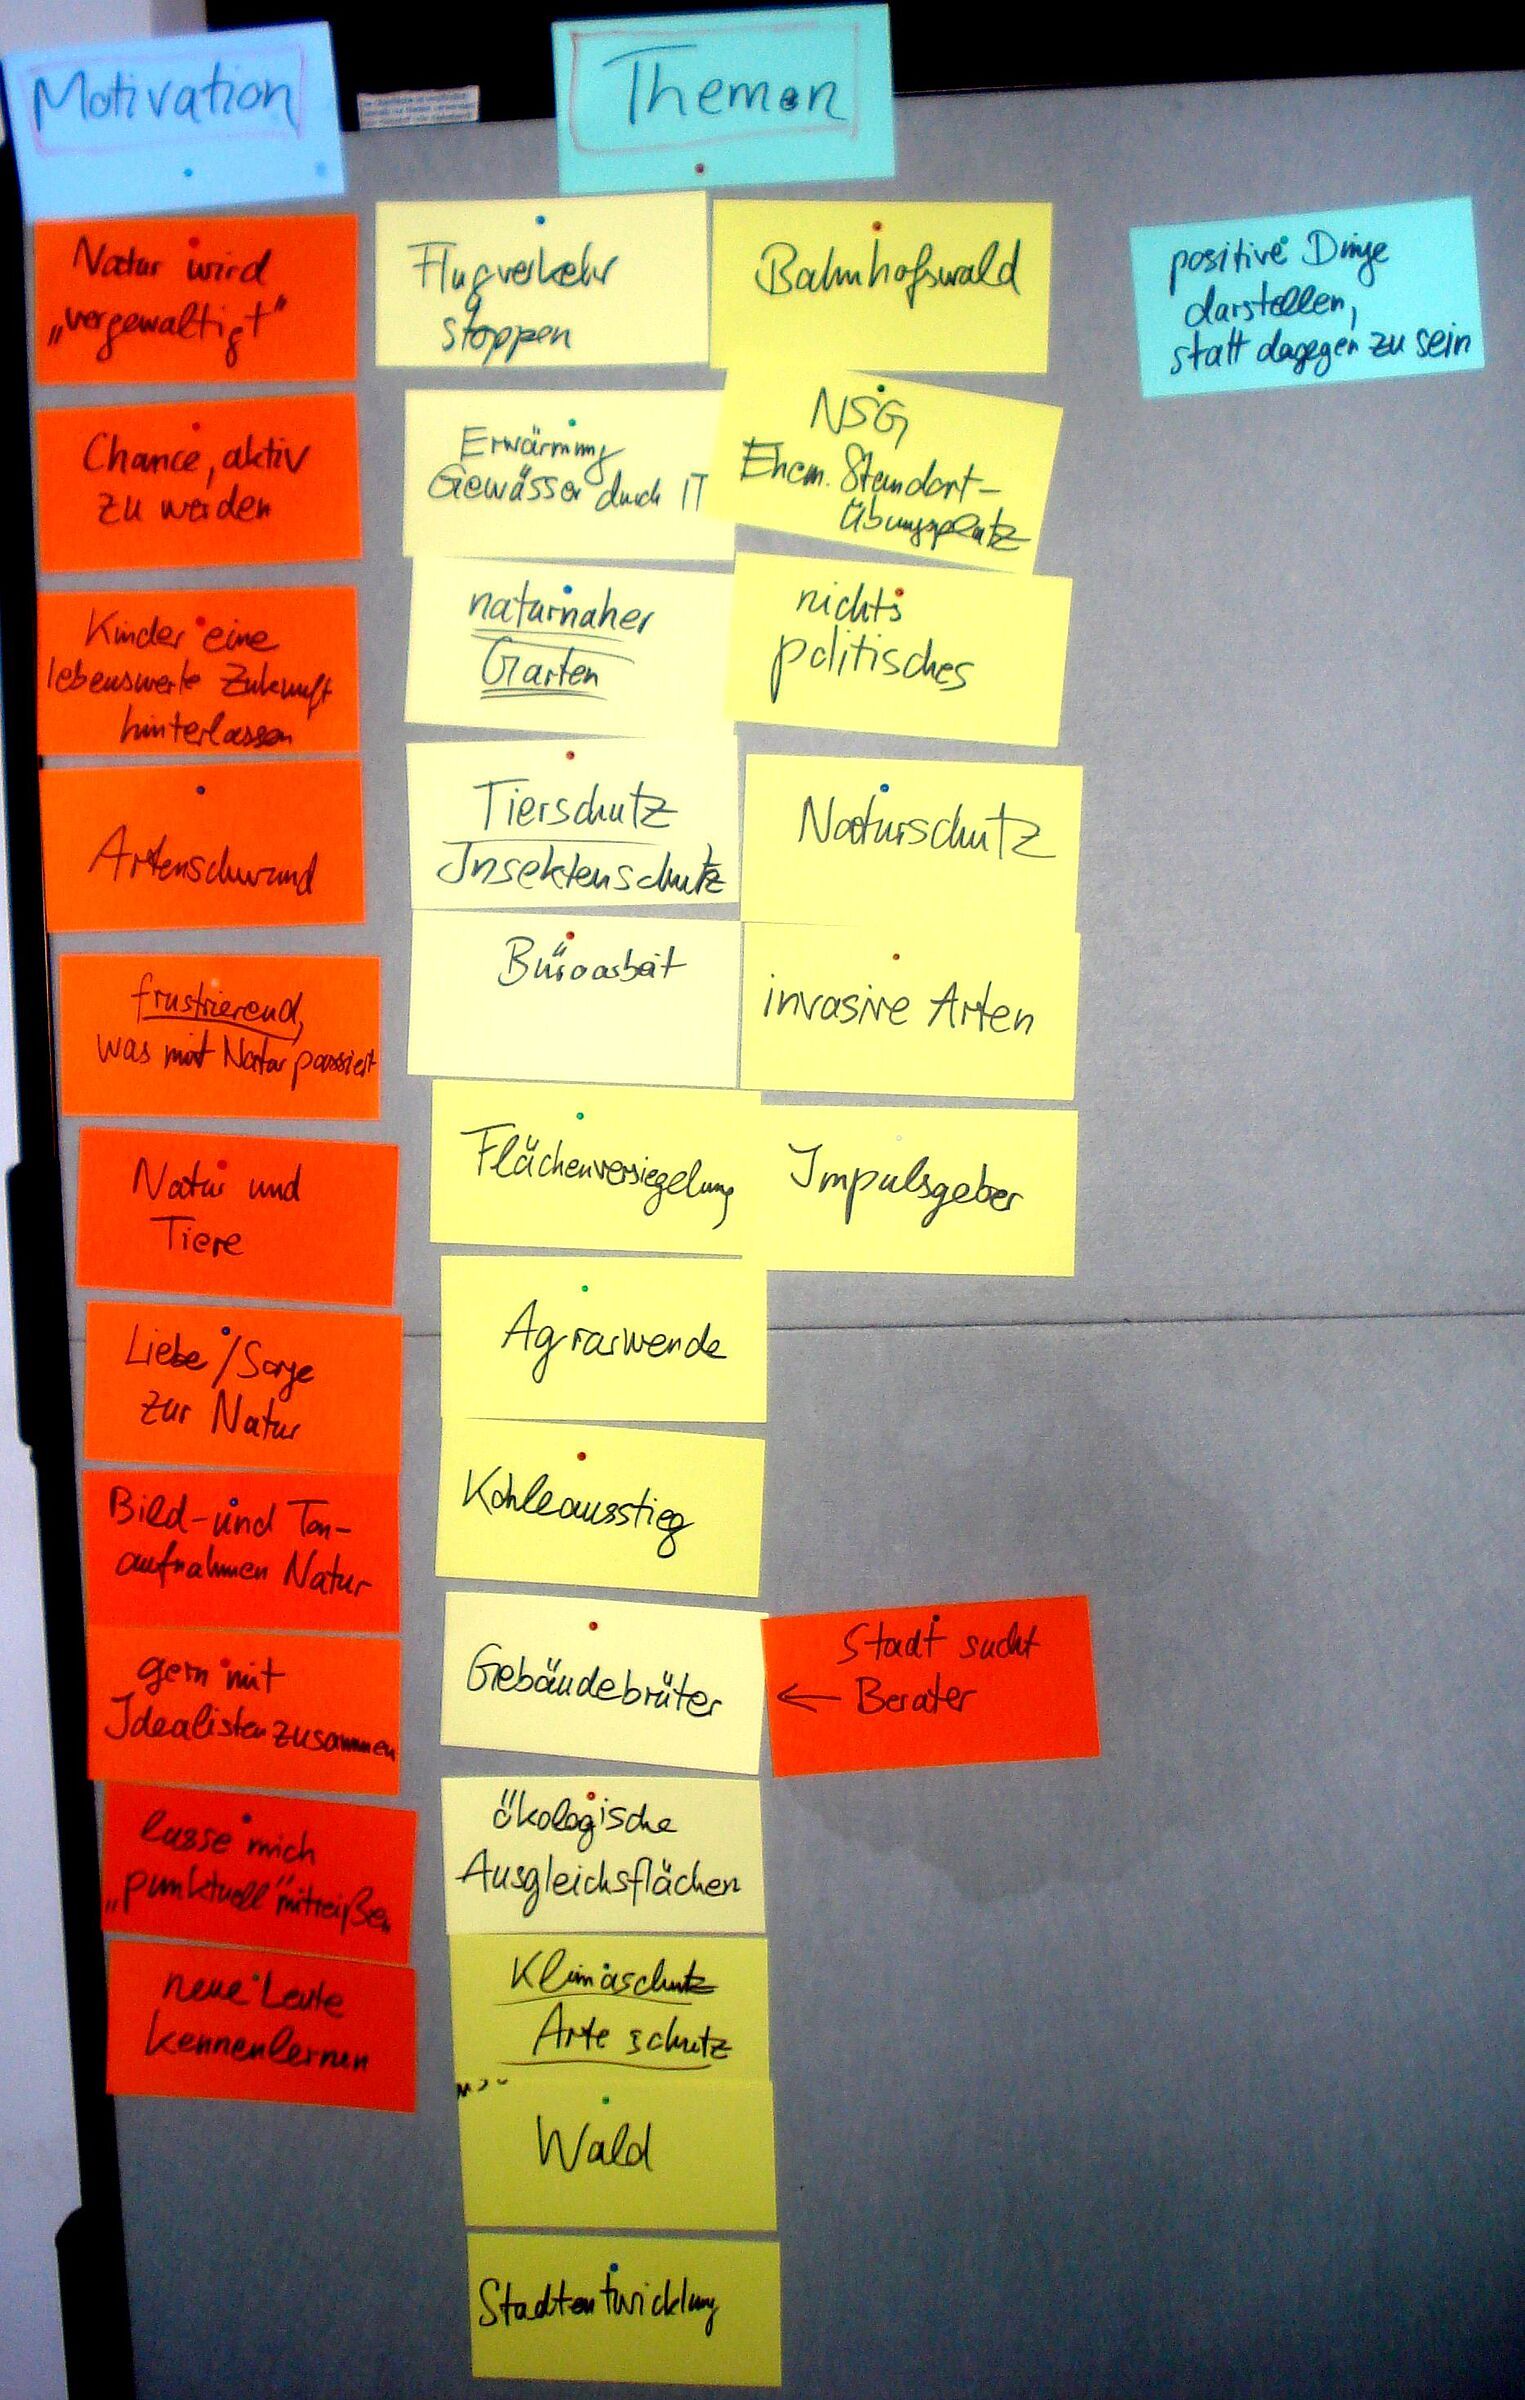 Motivation
Natur wird
„vergewaltigt“
Chance, aktiv
zu werden
Kinder eine
lebenswerte Zukunft
hinterlassen
Artenschwund
frustrierend,
was mit Natur passiert
Natur und
Tiere
Liebe / Sorge
zur Natur
Bild- und Ton-
aufnahmen Natur
gern mit
Idealisten zusammen
lasse mich
„punktuell“ mitreißen
neue Leute
kennenlernen
Themen
Flugverkehr
stoppen
Erwärmung
Gewässer durch IT
naturnaher
Garten
Tierschutz
Insektenschutz
Büroarbeit
Flächenversiegelung
Agrarwende
Kohleausstieg
Gebäudebrüter
ökologische
Ausgleichsflächen
Klimaschutz
Arte schutz
Wald
Stadtentwicklung
Bahnhofswald
NSG
Ehem. Standort-
übungsplatz
nichts
politisches
Naturschutz
invasive Arten
Impulsgeber
Stadt sucht
← Berater
positive Dinge
darstellen,
statt dagegen zu sein